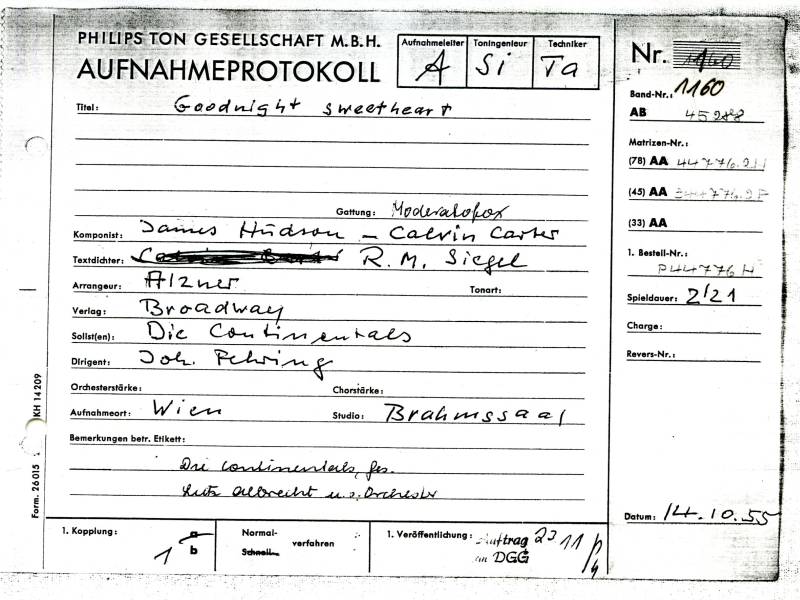 PHILIPS TON GESELLSCHAFT M.B.H.
AUFNAHMEPROTOKOLL
Aufnahmeleiter Toningenieur Techniker
A Si Ta
Nr. 1160
Band-Nr.: 1160
AB 45288
Titel: Goodnight sweetheart
Matrizen-Nr.:
(78) AA 44776.2H
(45) AA 344776.2F
(33) AA
Gattung: Moderatofox
Komponist: James Hudson – Calvin Carter
Textdichter: R.M. Siegel
1. Bestell-Nr.:
P44776H
Arrangeur: Alzner Tonart:
Spieldauer: 2/21
Verlag: Broadway
Charge:
Solist(en): Die Continentals
Revers-Nr.:
Dirigent: Joh. Fehring
Orchesterstärke: Chorstärke:
Aufnahmeort: Wien Studio: Brahmssaal
Bemerkungen betr. Etikett:
Die Continentals, ges.
Lutz Albrecht u.s. Orchester
Datum: 14.10.55
1. Kopplung: 1 a
b
Normal-
Schnell- verfahren
1. Veröffentlichung: Auftrag 23 11
an DGG
Form. 26015 KH 14209